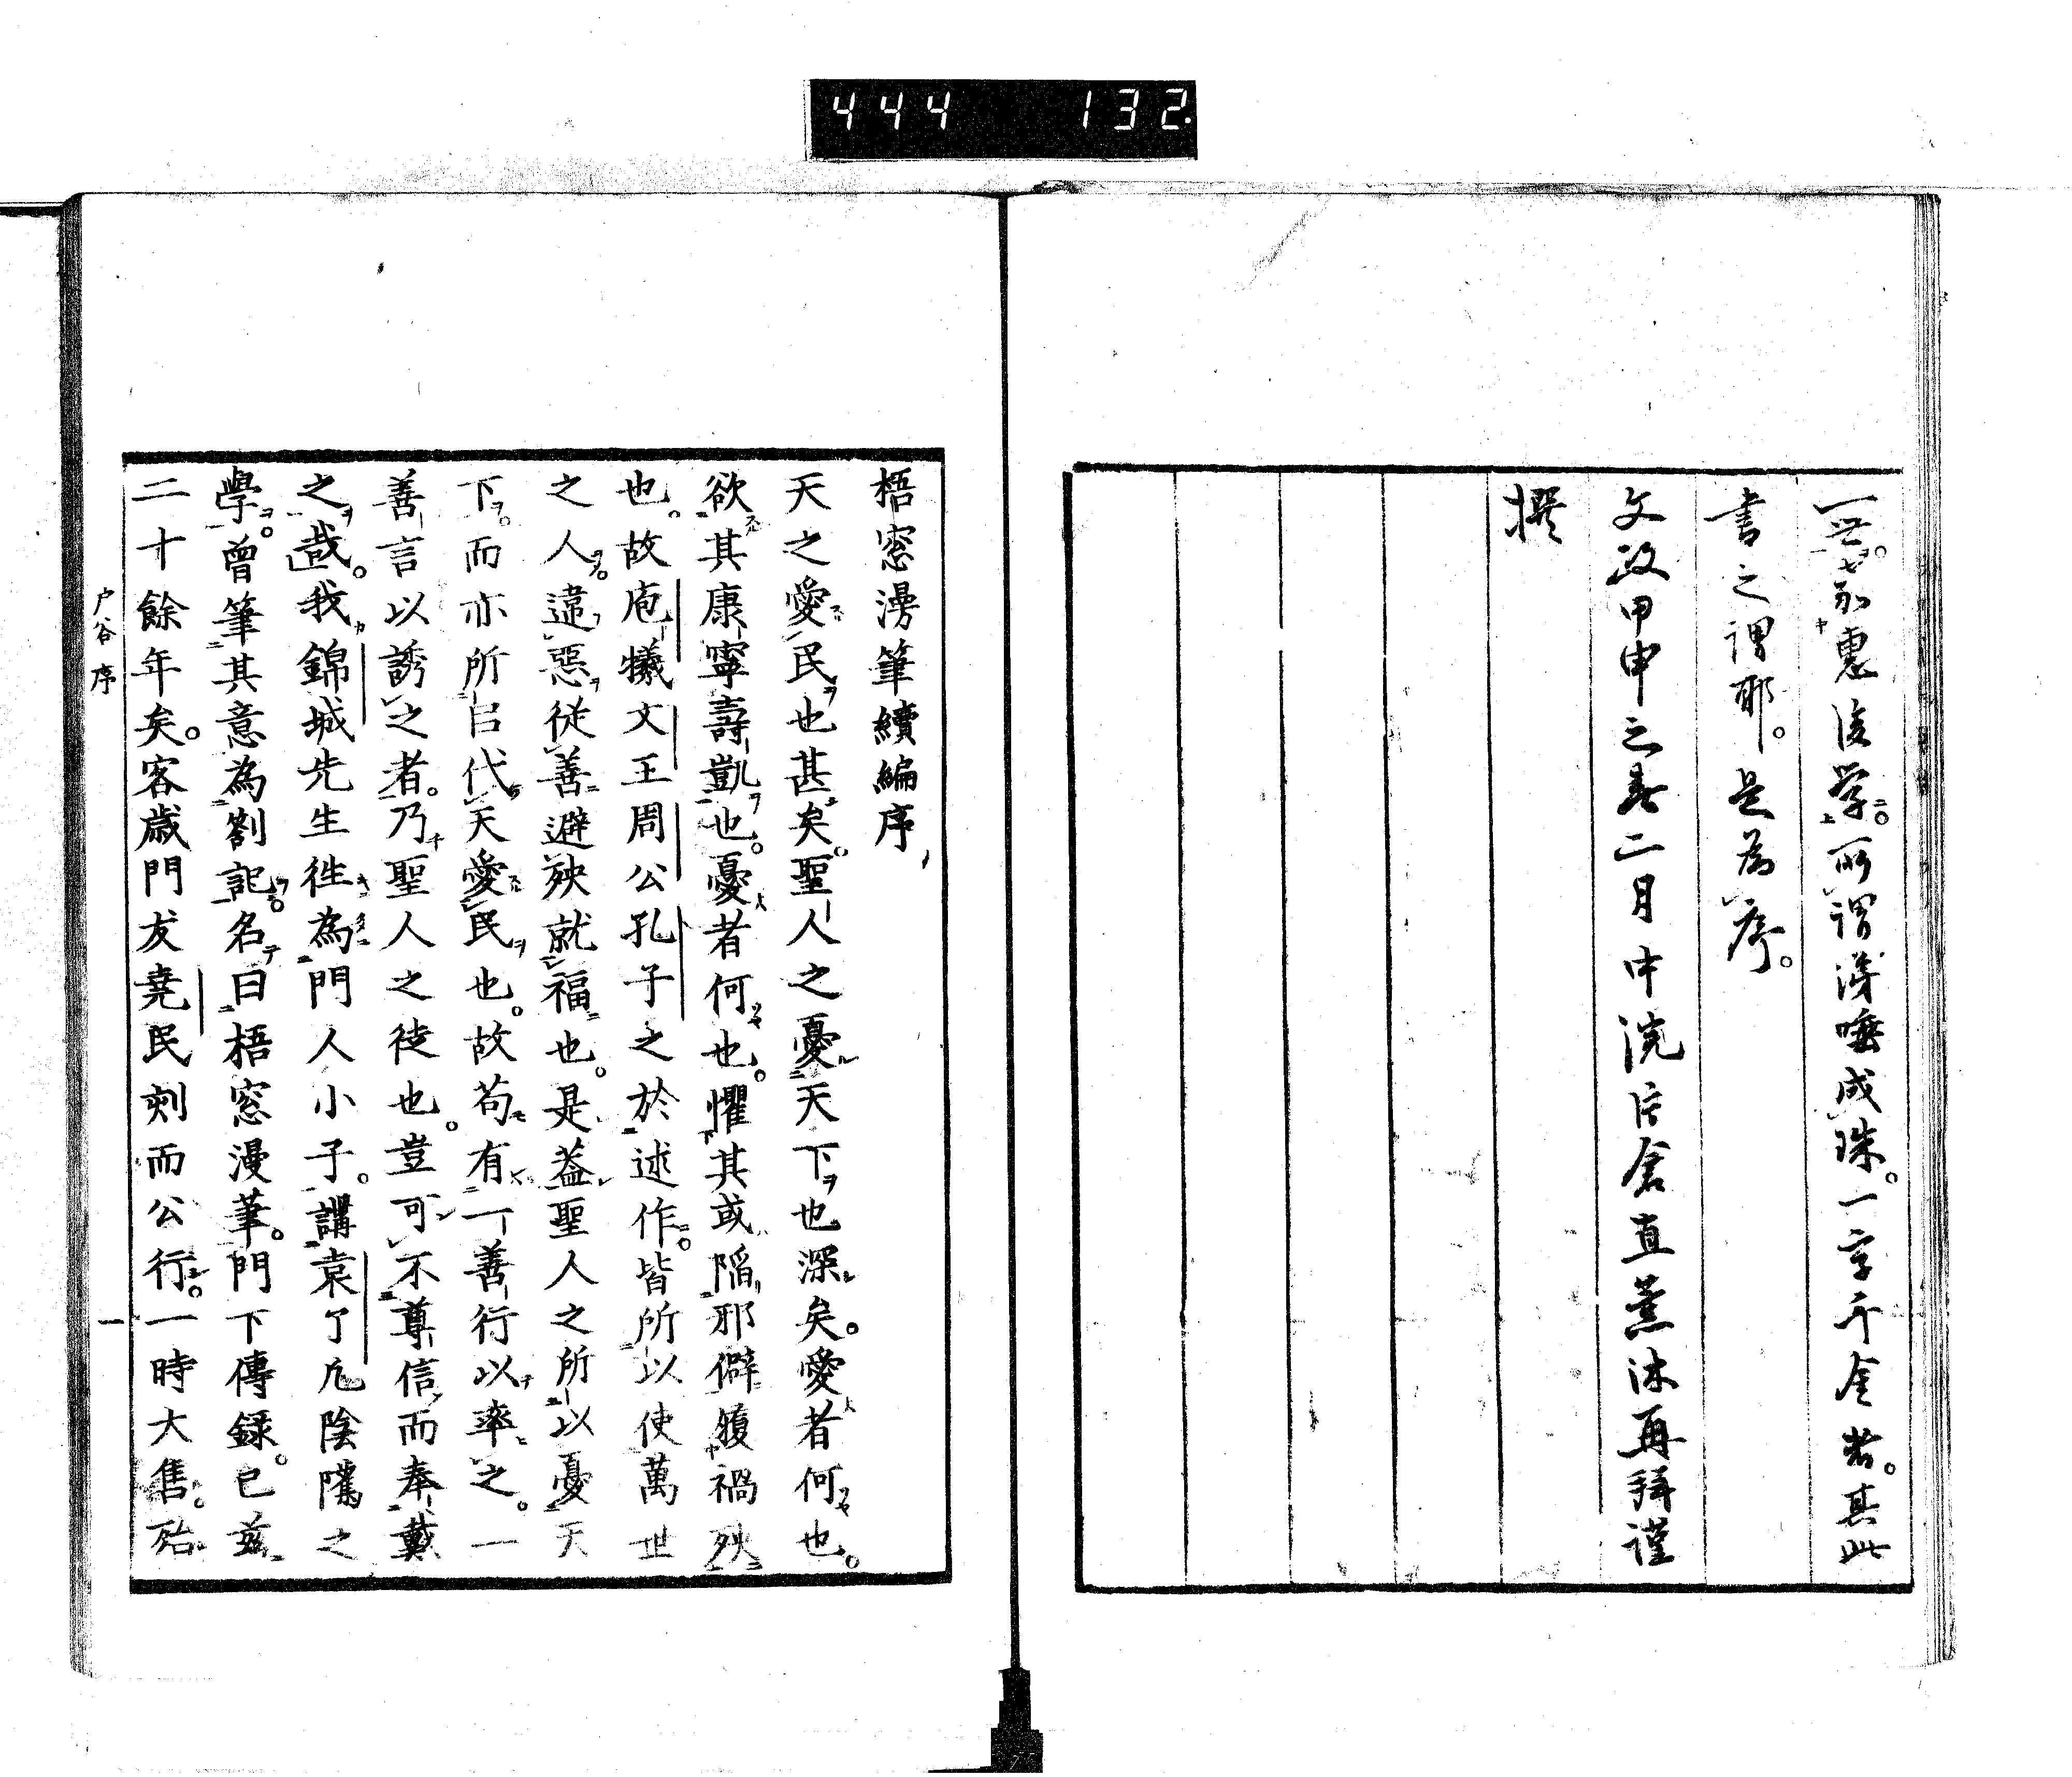 444 132.
一世。嘉惠後学。所謂涕唾成珠。一字千金者。其此
書之謂耶。是為序。
文政甲申之春二月中浣片倉直薫沐再拜謹
撰
梧窓漫筆續編序
天之愛民也甚矣。聖人之憂天下也深矣。愛者何也。
欲其康寧壽凱也。憂者何也。懼其或陷邪僻獲禍殃
也。故庖犧文王周公孔子之於述作。皆所以使萬世
之人。違惡從善避殃就福也。是蓋聖人之所以憂天
下。而亦所㠯代天愛民也。故苟有一善行以率之。一
善言以誘之者。乃聖人之徒也。豈可不尊信而奉戴
之哉。我錦城先生徃為門人小子。講袁了凡陰隲之
學。曾筆其意為劄記。名曰梧窓漫筆。門下傳録。已茲
二十餘年矣。客歳門友堯民刻而公行。一時大售。殆
戸谷序
一